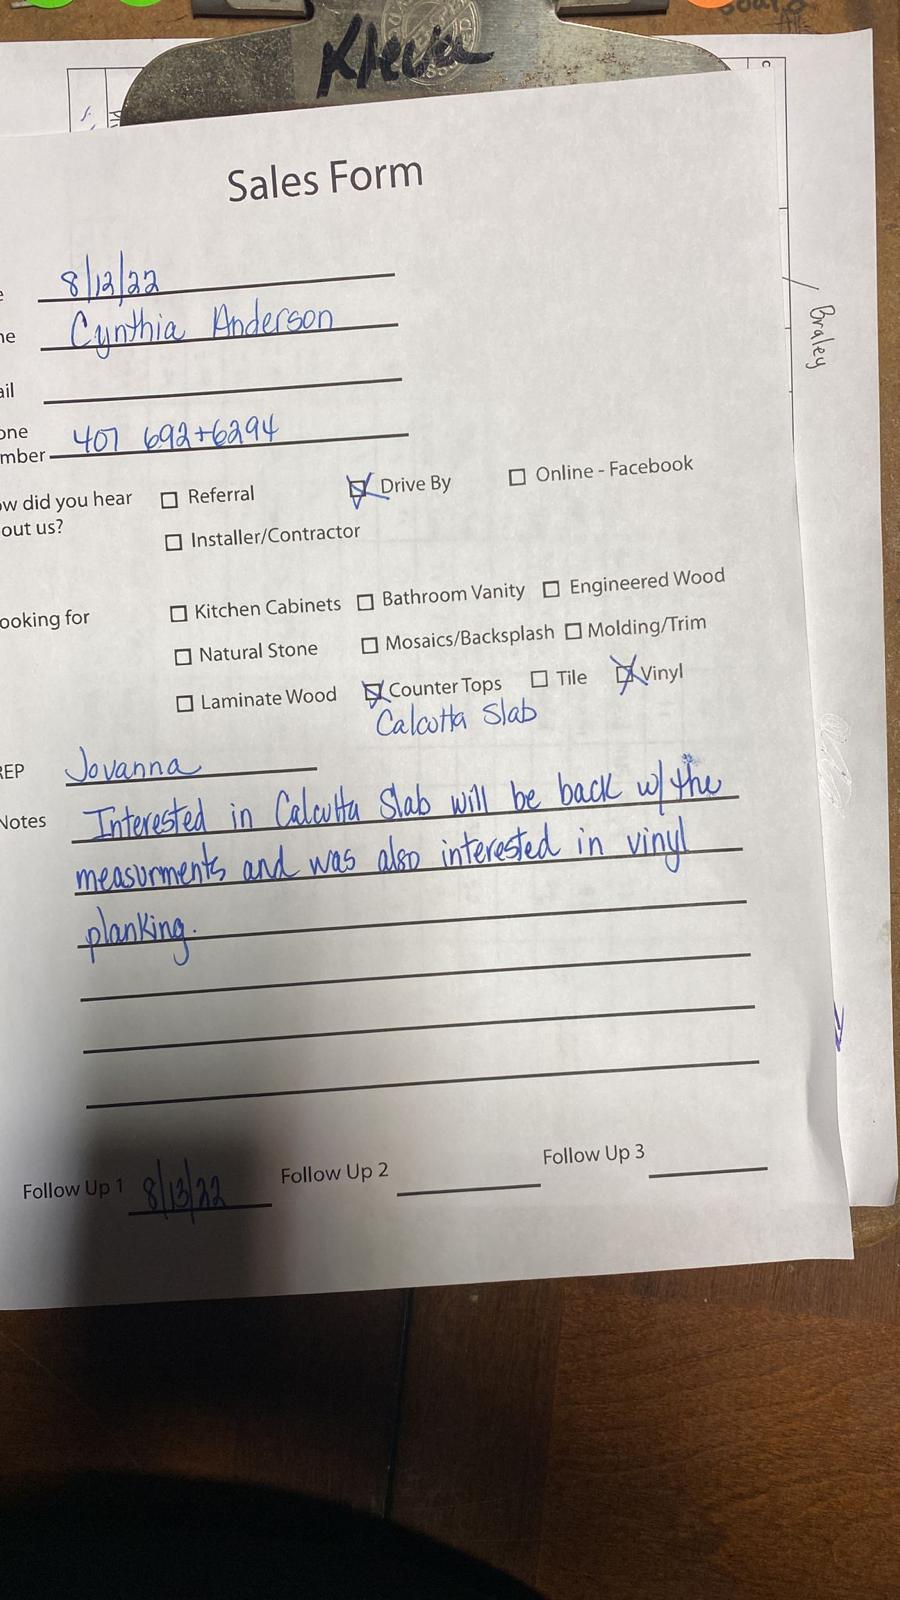 Sales Form
8/12/22
ne Cynthia Anderson
ail
one
mber 407 692+6294
ow did you hear
out us?
Referral Drive By Online - Facebook
Installer/Contractor
ooking for
Kitchen Cabinets Bathroom Vanity Engineered Wood
Natural Stone Mosaics/Backsplash Molding/Trim
Laminate Wood Counter Tops Tile Vinyl
Calcutta Slab
REP Jovanna
Notes Interested in Calcutta Slab will be back w/ the
measurments and was also interested in vinyl
planking.
Follow Up 1 8/13/22 Follow Up 2 Follow Up 3
Braley